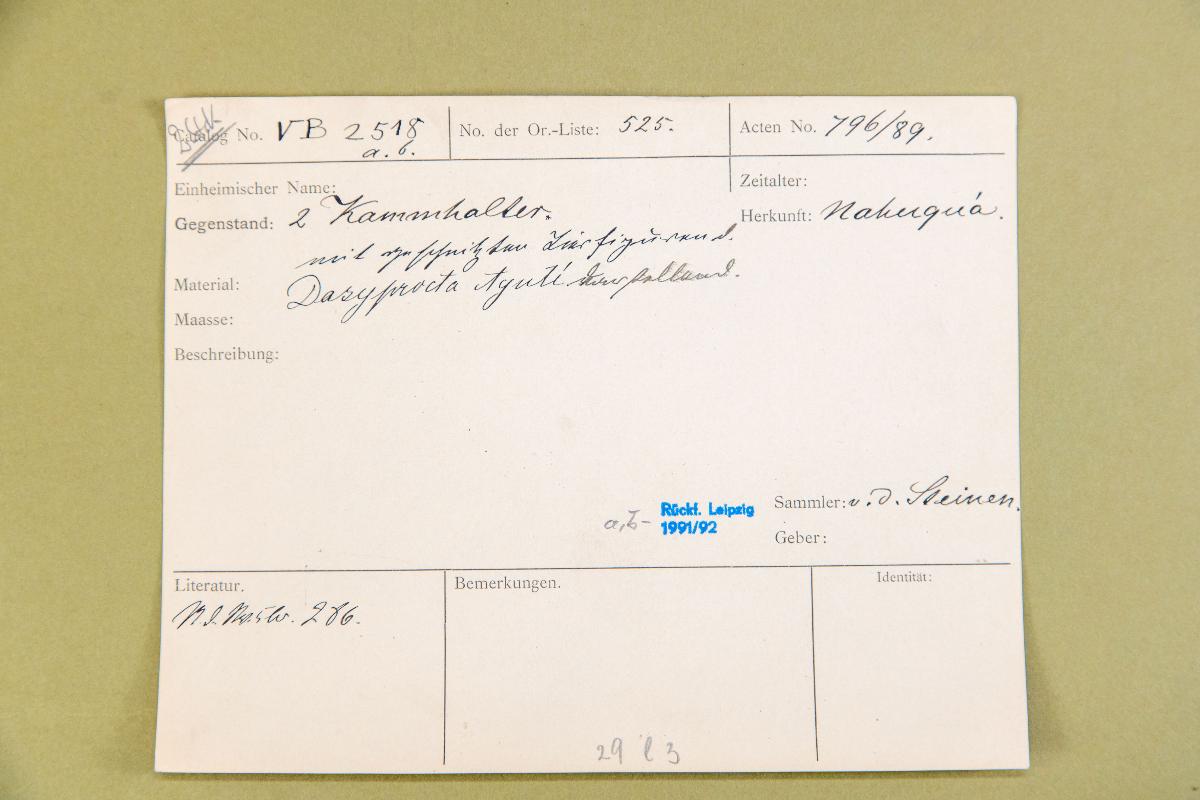 Catalog No. VB 2518 a. b.
No. der Or.-Liste: 525.
Acten No. 796/89.
Einheimischer Name:
Zeitalter:
Gegenstand: 2 Kammhalter.
Herkunft: Nahuquá.
mit geschnitzten Tierfiguren d.
Material: Dasyprocta Aguti darstellend.
Maasse:
Beschreibung:
Sammler: v. d. Steinen.
a, b - Rückf. Leipzig
1991/92
Geber:
Literatur.
Bemerkungen.
Identität:
286.
29 l 3